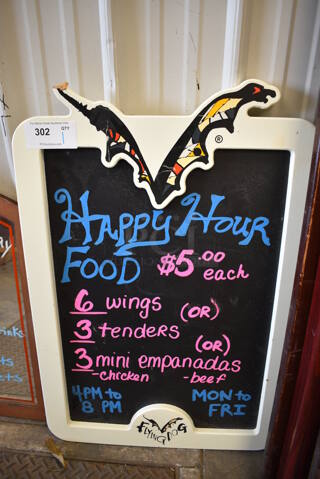 302
QTY
1
®
HAPPY HOUR
FOOD $5.00
each
6 wings (OR)
3 tenders
(OR)
3 mini empanadas
-chicken -beef
4PM to MON to
8 PM FRI
FLYING DOG